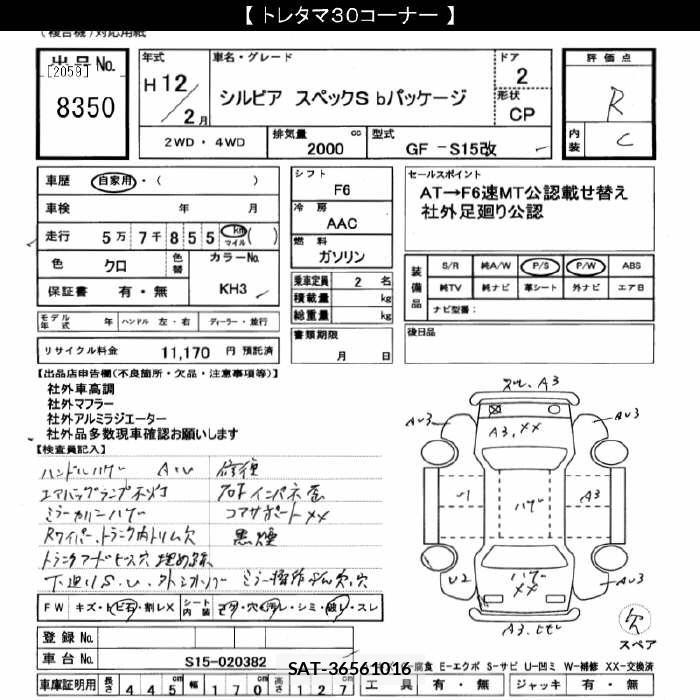 【 トレタマ30コーナー 】
(複合機)対応用紙
出品No.
[2059]
8350
年式
H 12 / 2 月
車名・グレード
シルビア スペックS bパッケージ
ドア
2
形状
CP
評価点
R
内装
C
2WD・4WD
排気量 2000 cc
型式 GF －S15改
車歴 自家用・( )
車検 年 月
走行 5万 7千 8 5 5 km マイル ( )
色 クロ 色替
カラーNo. KH3
保証書 有・無
シフト
F6
冷房
AAC
燃料
ガソリン
乗車定員 2 名
積載量 kg
総重量 kg
セールスポイント
AT→F6速MT公認載せ替え
社外足廻り公認
装備品
S/R 純A/W P/S P/W ABS
純TV 純ナビ 革シート 外ナビ エアB
ナビ型番：
モデル年式 年 ハンドル 左・右 ディーラー・並行
リサイクル料金 11,170 円 預託済
書類期限
月 日
後日品
【出品店申告欄(不良箇所・欠品・注意事項等)】
社外車高調
社外マフラー
社外アルミラジエーター
社外品多数現車確認お願いします
【検査員記入】
ハンドルハゲ AU 修復
エアバッグランプ
ミラーカバーハゲ コアサポートXX
Rワイパー、トランク内トリム欠 黒煙
下廻りS.U.
A3
A3,XX
AU3
AU3
U1
ハゲ
A3
U2
ハゲ
XX
AU3
A3.
欠
スペア
FW キズ・トビ石・割レX シート内装 コゲ・穴・汚レ・シミ・破レ・スレ
登録No.
車台No. S15-020382
車庫証明用 長さ 445 cm 幅 170 cm 高さ 127 cm
SAT-36561016
腐食 E-エクボ S-サビ U-凹ミ W-補修 XX-交換済
工具 有・無 ジャッキ 有・無